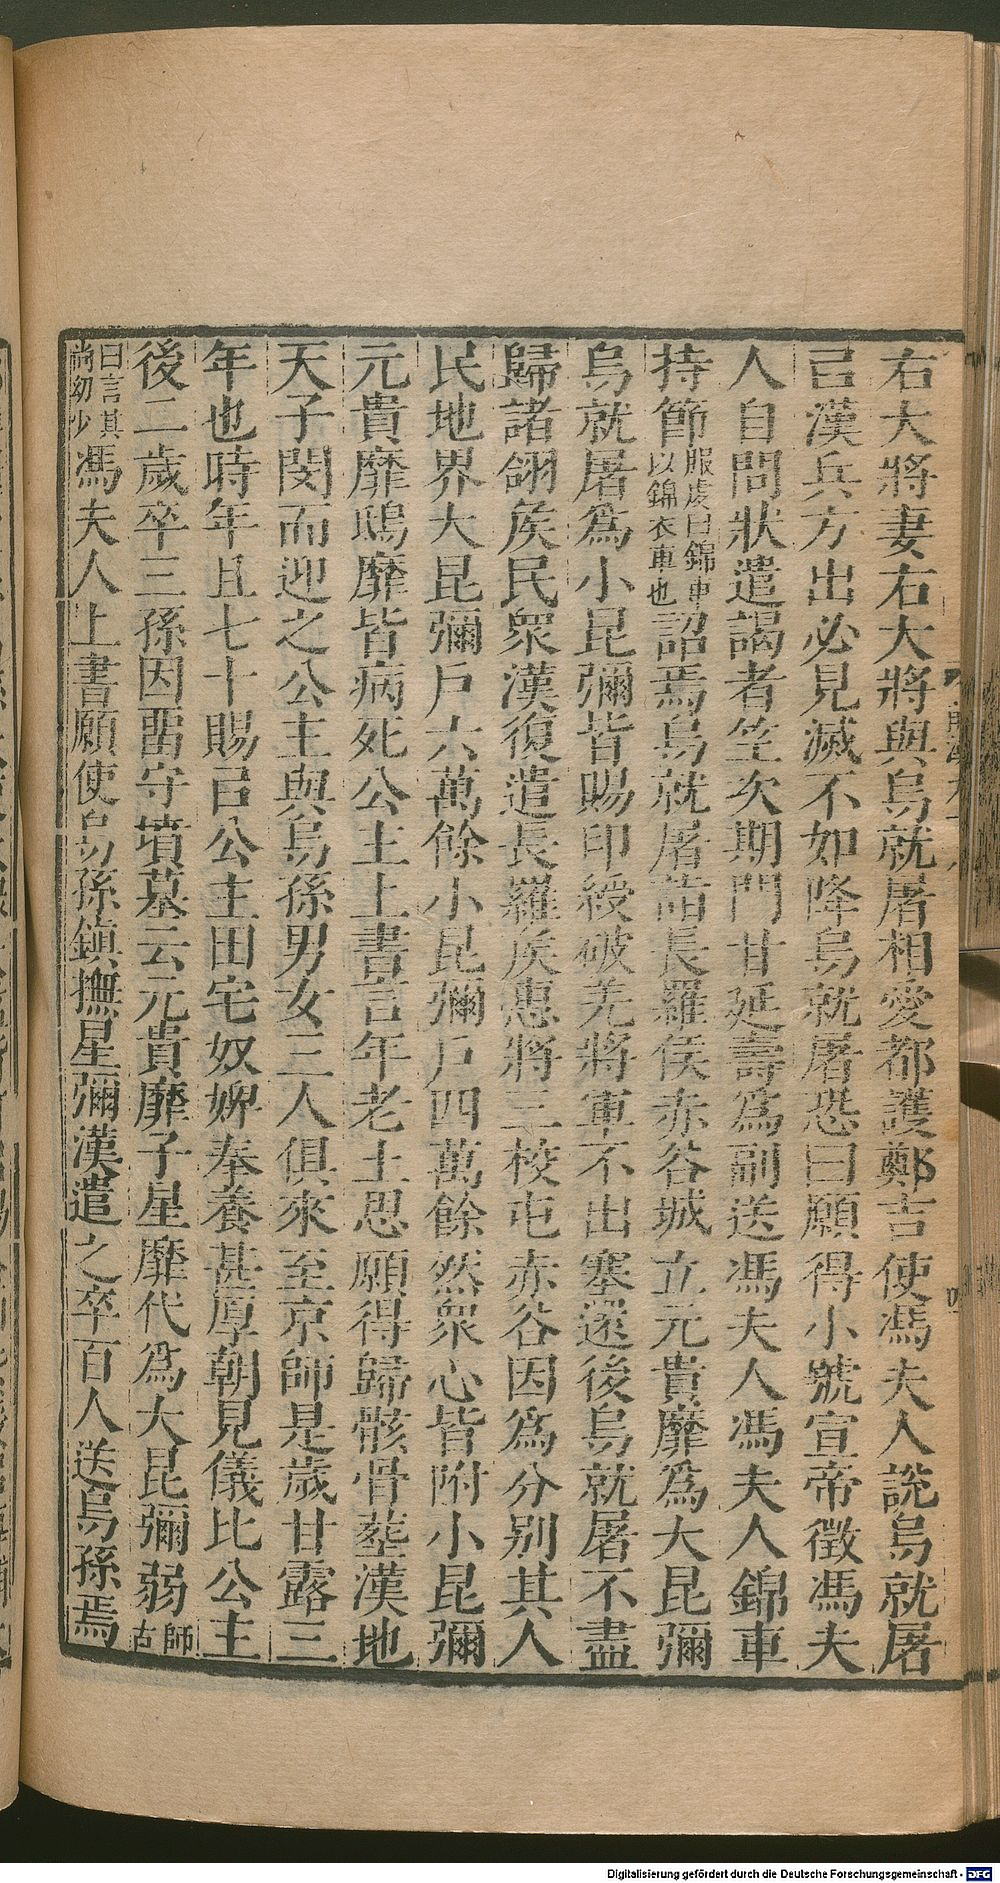 右大將妻右大將與烏就屠相愛都護鄭吉使馮夫人說烏就屠
㠯漢兵方出必見滅不如降烏就屠恐曰願得小號宣帝徵馮夫
人自問狀遣謁者竺次期門甘延壽爲副送馮夫人馮夫人錦車
持節服虔曰錦車以錦衣車也詔焉烏就屠詣長羅侯赤谷城立元貴靡爲大昆彌
烏就屠爲小昆彌皆賜印綬破羌將軍不出塞還後烏就屠不盡
歸諸翖矦民眾漢復遣長羅矦惠將三校屯赤谷因爲分别其人
民地界大昆彌戸六萬餘小昆彌戸四萬餘然眾心皆附小昆彌
元貴靡鴟靡皆病死公主上書言年老土思願得歸骸骨塟漢地
天子閔而迎之公主與烏孫男女三人俱來至京師是歲甘露三
年也時年且七十賜㠯公主田宅奴婢奉養甚厚朝見儀比公主
後二歲卒三孫因畱守墳墓云元貴靡子星靡代爲大昆彌弱師古
曰言其尚幼少馮夫人上書願使烏孫鎭撫星彌漢遣之卒百人送烏孫焉
Digitalisierung gefördert durch die Deutsche Forschungsgemeinschaft - DFG